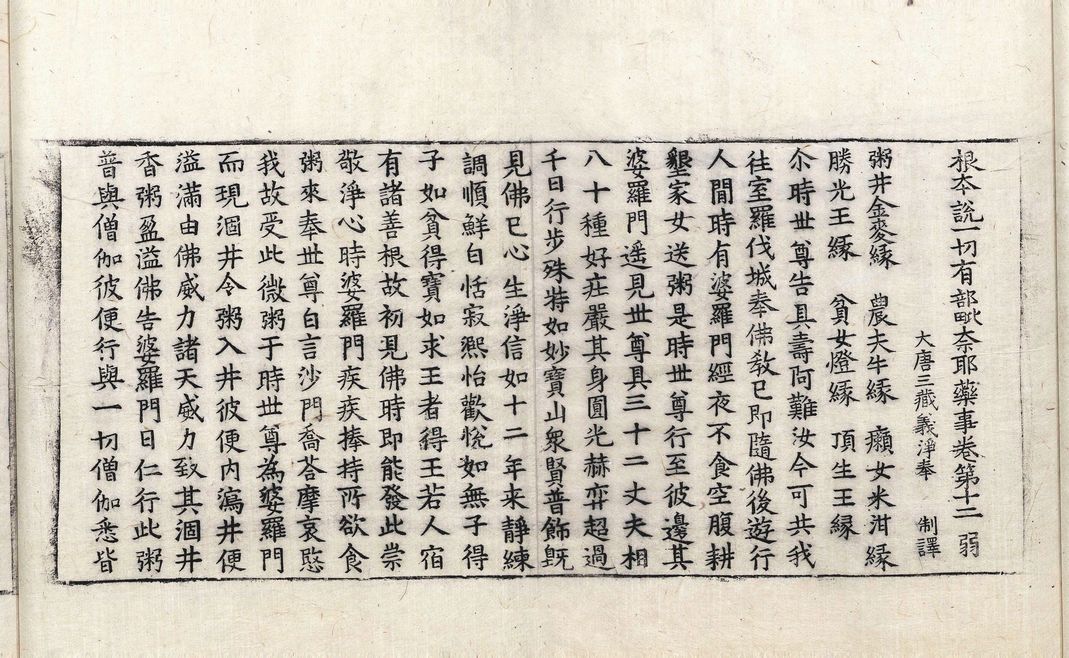 根本說一切有部毗奈耶藥事卷第十二　弱
大唐三藏義淨奉　制譯
粥井金麥緣　農夫牛緣　癩女米泔緣
勝光王緣　貧女燈緣　頂生王緣
尒時世尊告具壽阿難汝今可共我
往室羅伐城奉佛教已即隨佛後遊行
人閒時有婆羅門經夜不食空腹耕
墾家女送粥是時世尊行至彼邊其
婆羅門遥見世尊具三十二丈夫相
八十種好莊嚴其身圓光赫弈超過
千日行步殊特如妙寶山衆賢普飾旣
見佛已心生淨信如十二年来靜練
調順鮮白恬寂熙怡歡悅如無子得
子如貧得寶如求王者得王若人宿
有諸善根故初見佛時即能發此崇
敬淨心時婆羅門疾疾捧持所欲食
粥來奉世尊白言沙門喬荅摩哀愍
我故受此微粥于時世尊為婆羅門
而現涸井令粥入井彼便內瀉井便
溢滿由佛威力諸天威力致其涸井
香粥盈溢佛告婆羅門曰仁行此粥
普與僧伽彼便行與一切僧伽悉皆